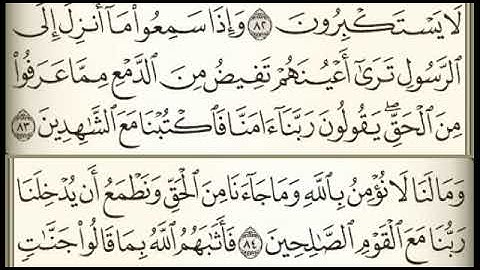 لَا يَسْتَكْبِرُونَ ٨٢ وَإِذَا سَمِعُوا۟ مَآ أُنزِلَ إِلَى
ٱلرَّسُولِ تَرَىٰٓ أَعْيُنَهُمْ تَفِيضُ مِنَ ٱلدَّمْعِ مِمَّا عَرَفُوا۟
مِنَ ٱلْحَقِّ ۖ يَقُولُونَ رَبَّنَآ ءَامَنَّا فَٱكْتُبْنَا مَعَ ٱلشَّٰهِدِينَ ٨٣
وَمَا لَنَا لَا نُؤْمِنُ بِٱللَّهِ وَمَا جَآءَنَا مِنَ ٱلْحَقِّ وَنَطْمَعُ أَن يُدْخِلَنَا
رَبُّنَا مَعَ ٱلْقَوْمِ ٱلصَّٰلِحِينَ ٨٤ فَأَثَٰبَهُمُ ٱللَّهُ بِمَا قَالُوا۟ جَنَّٰتٍ